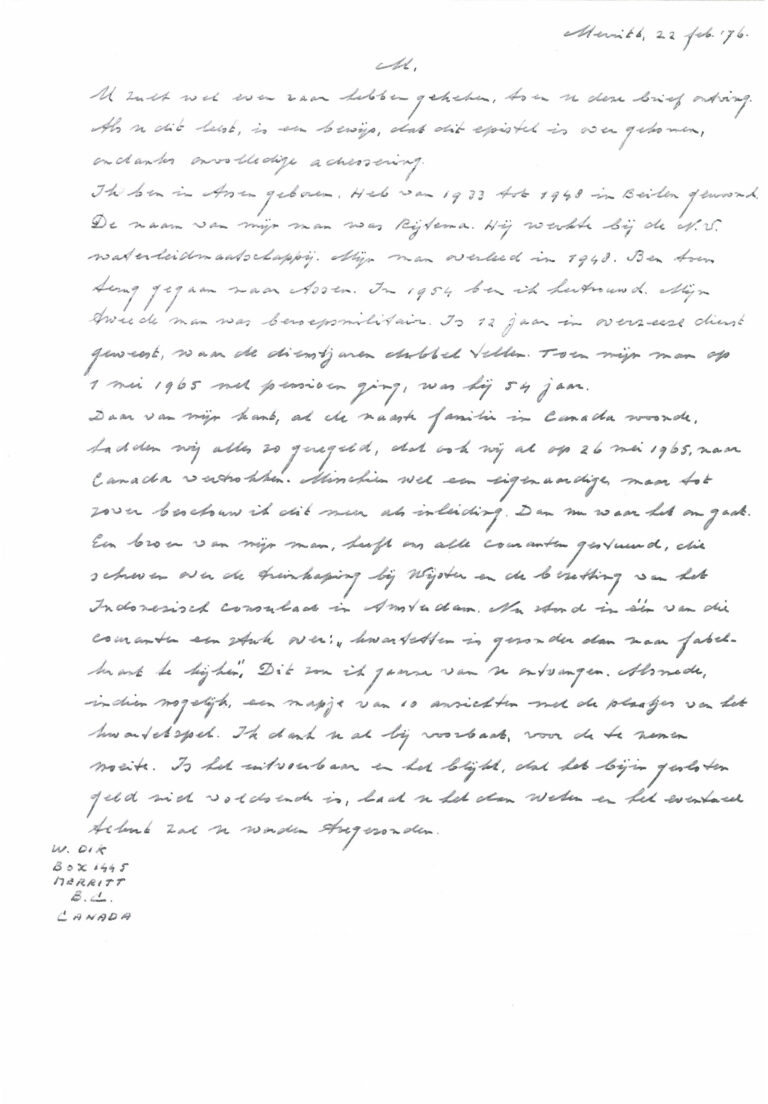 Merritt, 22 feb. '76.
M.
U zult wel even raar hebben gekeken, toen u deze brief ontving.
Als u dit leest, is een bewijs, dat dit epistel is over gekomen,
ondanks onvolledige adressering.
Ik ben in Assen geboren. Heb van 1933 tot 1948 in Beilen gewoond.
De naam van mijn man was Rijtema. Hij werkte bij de N.V.
waterleidmaatschappij. Mijn man overleed in 1948. Ben toen
terug gegaan naar Assen. In 1954 ben ik hertrouwd. Mijn
tweede man was beroepsmilitair. Is 12 jaar in overzeese dienst
geweest, waar de dienstjaren dubbel tellen. Toen mijn man op
1 mei 1965 met pensioen ging, was hij 54 jaar.
Daar van mijn kant, al de naaste familie in Canada woonde,
hadden wij alles zo geregeld, dat ook wij al op 26 mei 1965, naar
Canada vertrokken. Misschien wel een eigenaardige, maar tot
zover beschouw ik dit meer als inleiding. Dan nu waar het om gaat.
Een broer van mijn man, heeft ons alle couranten gestuurd, die
schreven over de treinkaping bij Wijster en de bezetting van het
Indonesisch consulaat in Amsterdam. Nu stond in één van die
couranten een stuk over: „kwartetten is gezonder dan naar fabel-
krant te kijken". Dit zou ik gaarne van u ontvangen. Alsmede,
indien mogelijk, een mapje van 10 ansichten met de plaatjes van het
kwartetspel. Ik dank u al bij voorbaat, voor de te nemen
moeite. Is het uitvoerbaar en het blijkt, dat het bijin gesloten
geld niet voldoende is, laat u het dan weten en het eventueel
tekort zal u worden toegezonden.
W. DIK
BOX 1445
MERRITT
B.C.
CANADA